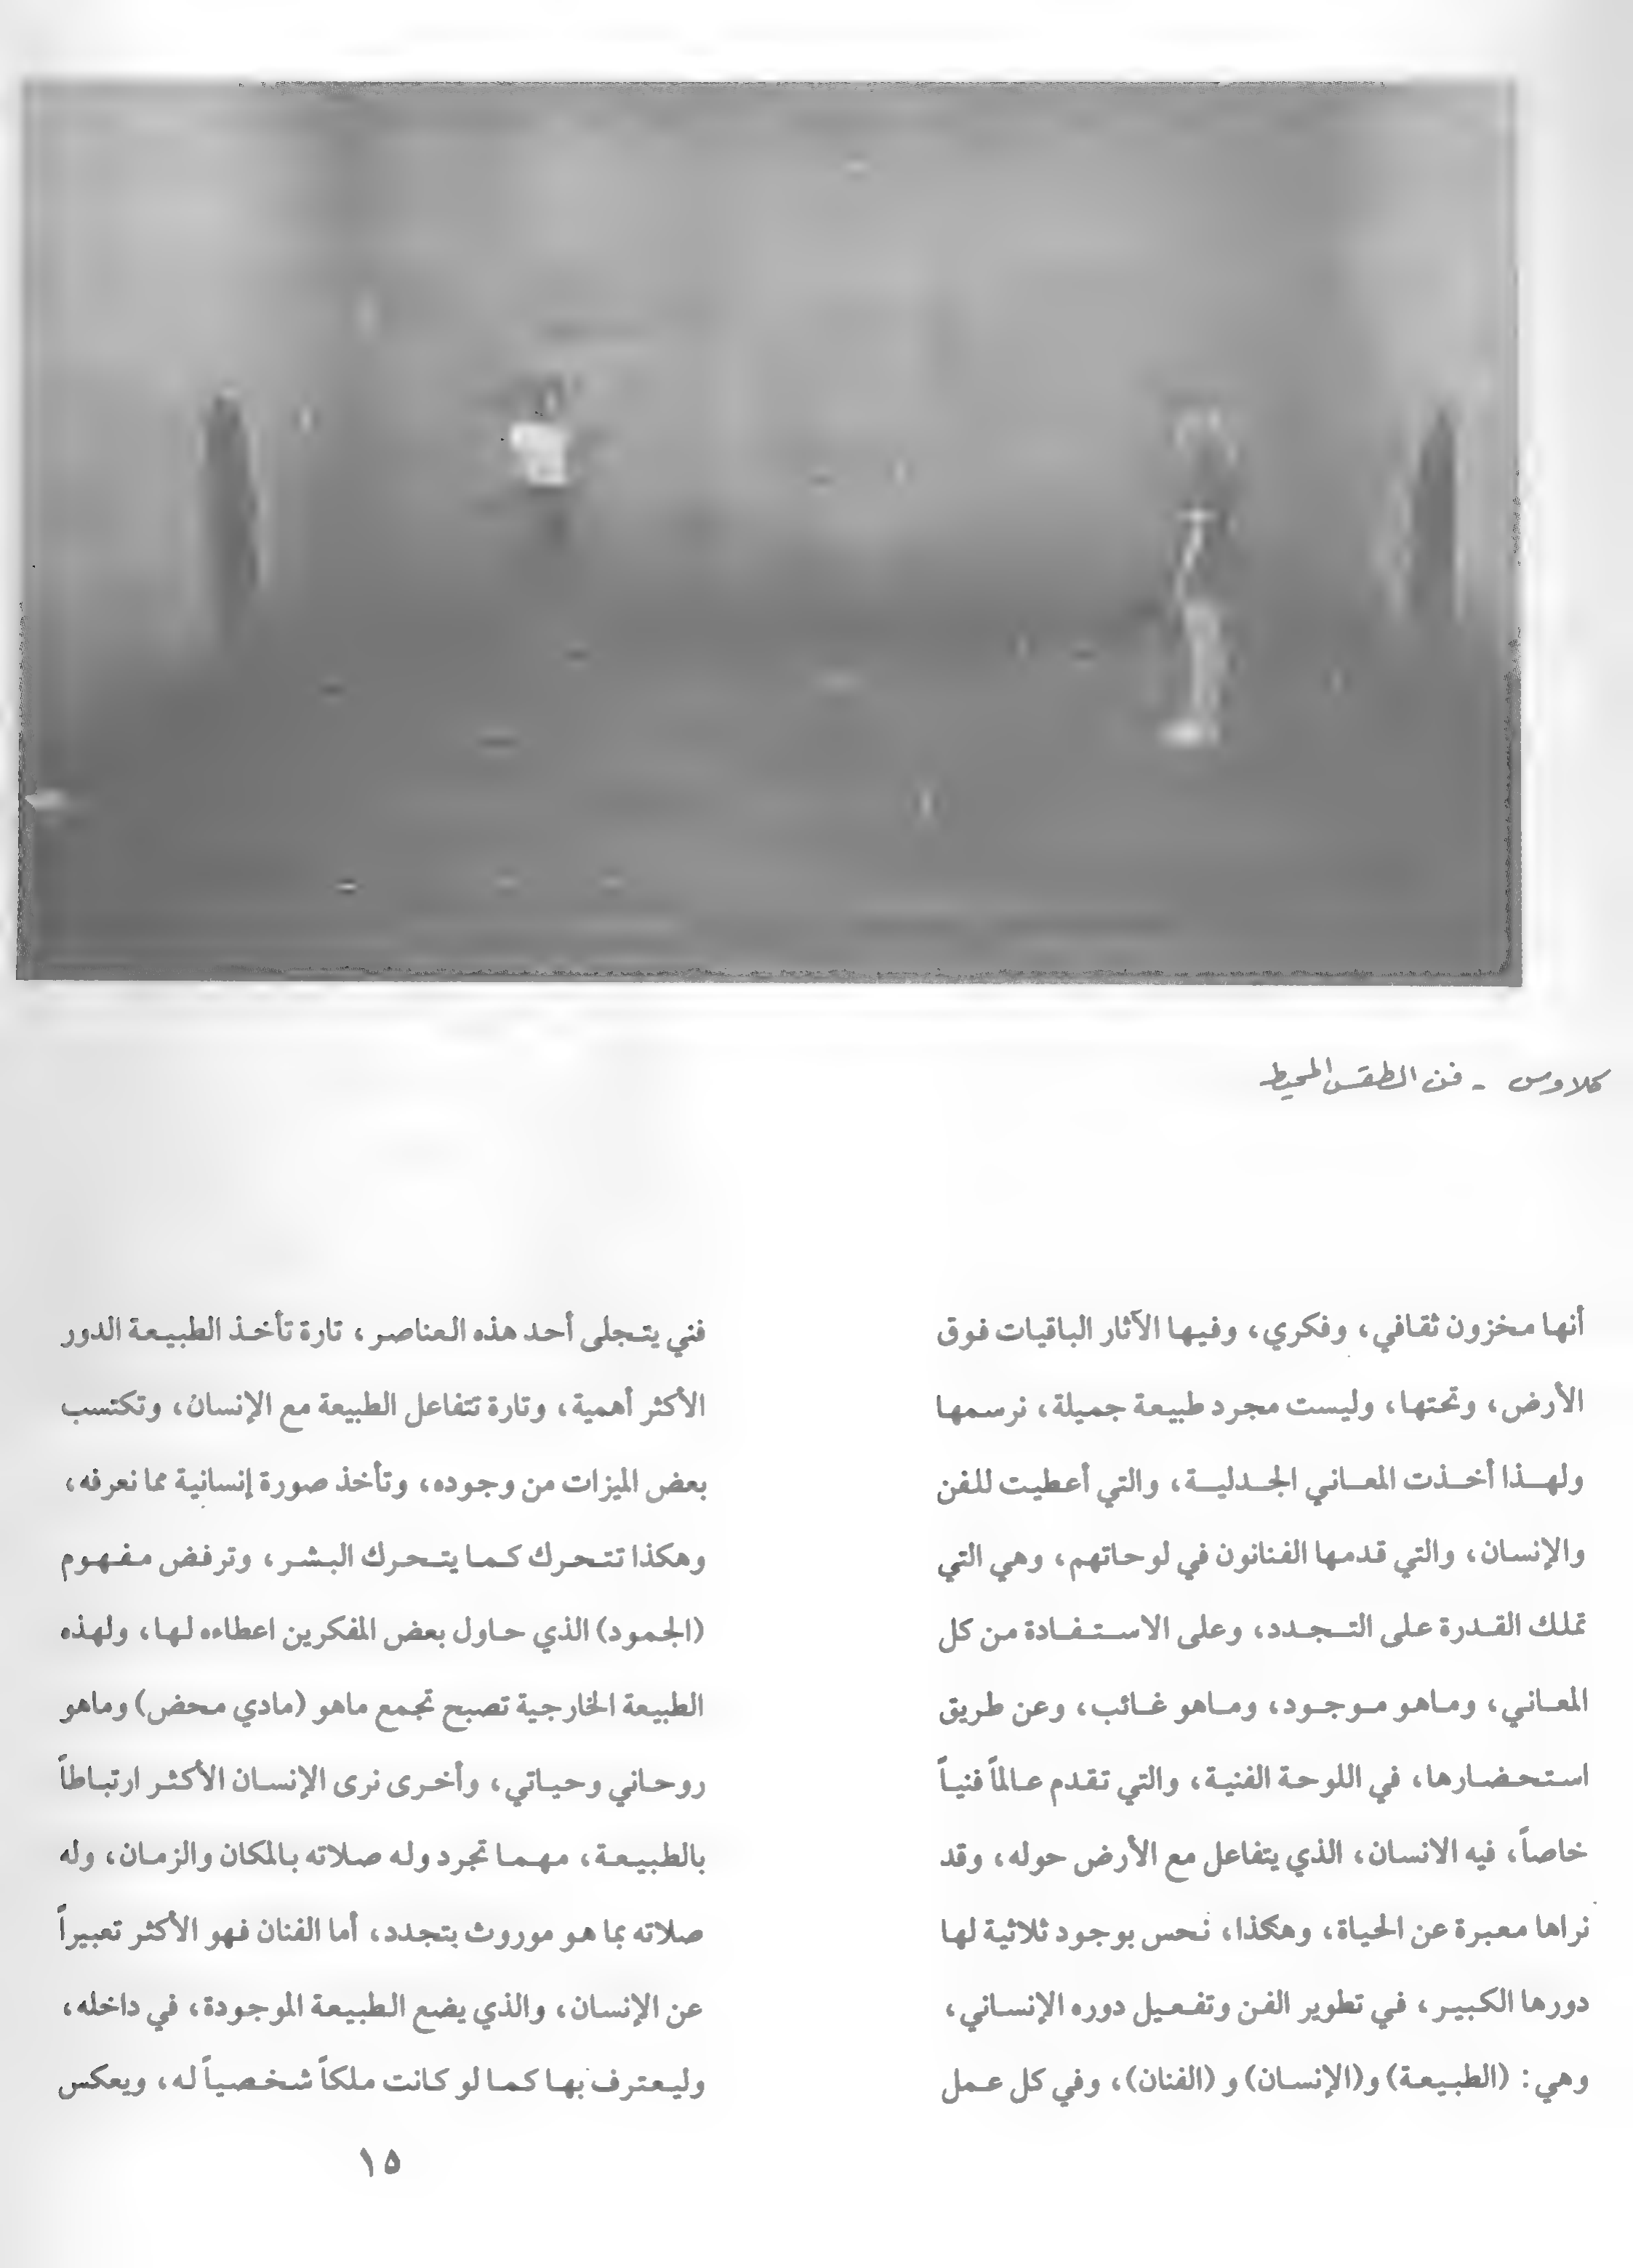 كلاوس - فن الطقس المحيط
أنها مخزون ثقافي، وفكري، وفيها الآثار الباقيات فوق
الأرض، وتحتها، وليست مجرد طبيعة جميلة، نرسمها
ولهذا أخذت المعاني الجدلية، والتي أعطيت للفن
والإنسان، والتي قدمها الفنانون في لوحاتهم، وهي التي
تملك القدرة على التجدد، وعلى الاستفادة من كل
المعاني، وماهو موجود، وماهو غائب، وعن طريق
استحضارها، في اللوحة الفنية، والتي تقدم عالماً فنياً
خاصاً، فيه الانسان، الذي يتفاعل مع الأرض حوله، وقد
نراها معبرة عن الحياة، وهكذا، نحس بوجود ثلاثية لها
دورها الكبير، في تطوير الفن وتفعيل دوره الإنساني،
وهي: (الطبيعة) و(الإنسان) و (الفنان)، وفي كل عمل
فني يتجلى أحد هذه العناصر، تارة تأخذ الطبيعة الدور
الأكثر أهمية، وتارة تتفاعل الطبيعة مع الإنسان، وتكتسب
بعض الميزات من وجوده، وتأخذ صورة إنسانية مما نعرفه،
وهكذا تتحرك كما يتحرك البشر، وترفض مفهوم
(الجمود) الذي حاول بعض المفكرين اعطاءه لها، ولهذه
الطبيعة الخارجية تصبح تجمع ماهو (مادي محض) وماهو
روحاني وحياتي، وأخرى نرى الإنسان الأكثر ارتباطاً
بالطبيعة، مهما تجرد وله صلاته بالمكان والزمان، وله
صلاته بما هو موروث يتجدد، أما الفنان فهو الأكثر تعبيراً
عن الإنسان، والذي يضع الطبيعة الموجودة، في داخله،
وليعترف بها كما لو كانت ملكاً شخصياً له، ويعكس
١٥